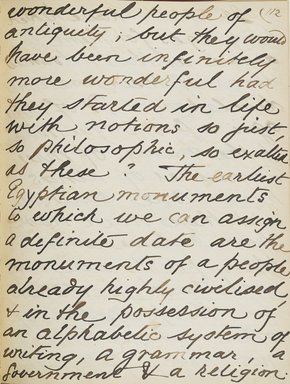 wonderful people of (112
antiquity; but they would
have been infinitely
more wonderful had
they started in life
with notions so just
so philosophic, so exalted
as these? The earliest
Egyptian monuments
to which we can assign
a definite date are the
monuments of a people
already highly civilised,
& in the possession of
an alphabetic system of
writing, a grammar, a
government & a religion.